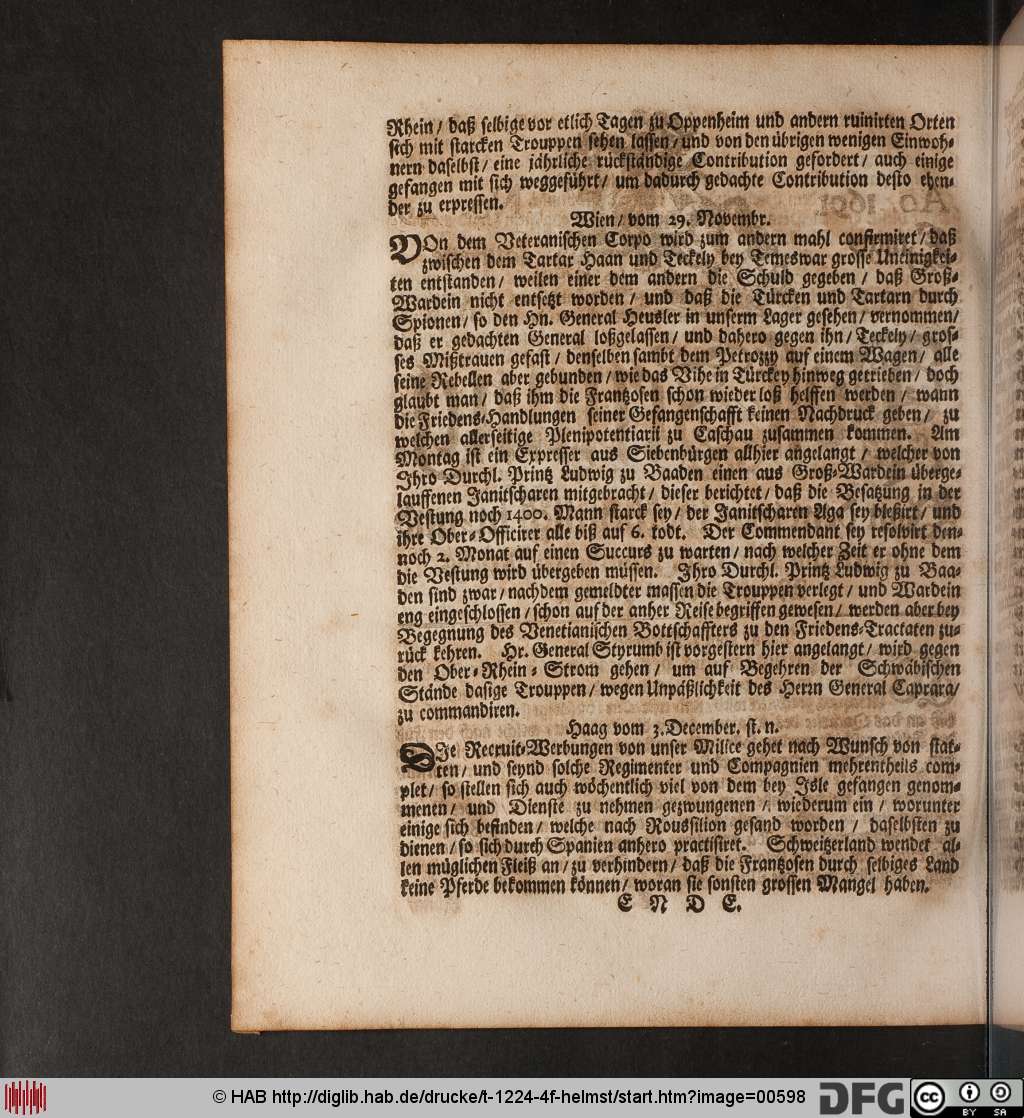 Rhein / daß selbige vor etlich Tagen zu Oppenheim und andern ruinirten Orten
sich mit starcken Trouppen sehen lassen / und von den übrigen wenigen Einwoh-
nern daselbst / eine jährliche rückständige Contribution gefordert / auch einige
gefangen mit sich weggeführt / um dadurch gedachte Contribution desto ehen-
der zu erpressen.
Wien / vom 29. Novembr.
VOn dem Veteranischen Corpo wird zum andern mahl confirmiret / daß
zwischen dem Tartar Haan und Teckely bey Temeswar grosse Uneinigkei-
ten entstanden / weilen einer dem andern die Schuld gegeben / daß Groß-
Wardein nicht entsetzt worden / und daß die Türcken und Tartarn durch
Spionen / so den Hn. General Heusler in unserm Lager gesehen / vernommen /
daß er gedachten General loßgelassen / und dahero gegen ihn / Teckely / gros-
ses Mißtrauen gefast / denselben sambt dem Petrozzy auf einem Wagen / alle
seine Rebellen aber gebunden / wie das Vihe in Türckey hinweg getrieben / doch
glaubt man / daß ihm die Frantzosen schon wieder loß helffen werden / wann
die Friedens-Handlungen seiner Gefangenschafft keinen Nachdruck geben / zu
welchen allerseitige Plenipotentiarii zu Caschau zusammen kommen. Am
Montag ist ein Expresser aus Siebenbürgen allhier angelangt / welcher von
Ihro Durchl. Printz Ludwig zu Baaden einen aus Groß-Wardein überge-
lauffenen Janitscharen mitgebracht / dieser berichtet / daß die Besatzung in der
Vestung noch 1400. Mann starck sey / der Janitscharen Aga sey bleßirt / und
ihre Ober-Officirer alle biß auf 6. todt. Der Commendant sey resolvirt den-
noch 2. Monat auf einen Succurs zu warten / nach welcher Zeit er ohne dem
die Vestung wird übergeben müssen. Ihro Durchl. Printz Ludwig zu Baa-
den sind zwar / nachdem gemeldter massen die Trouppen verlegt / und Wardein
eng eingeschlossen / schon auf der anher Reise begriffen gewesen / werden aber bey
Begegnung des Venetianischen Bottschaffters zu den Friedens-Tractaten zu-
rück kehren. Hr. General Styrumb ist vorgestern hier angelangt / wird gegen
den Ober-Rhein-Strom gehen / um auf Begehren der Schwäbischen
Stände dasige Trouppen / wegen Unpäßlichkeit des Herrn General Caprara /
zu commandiren.
Haag vom 3. December. st. n.
DIe Recruit-Werbungen von unser Milice gehet nach Wunsch von stat-
ten / und seynd solche Regimenter und Compagnien mehrentheils com-
plet / so stellen sich auch wöchentlich viel von dem bey Isle gefangen genom-
menen / und Dienste zu nehmen gezwungenen / wiederum ein / worunter
einige sich befinden / welche nach Roussilion gesand worden / daselbsten zu
dienen / so sich durch Spanien anhero practisiret. Schweitzerland wendet al-
len müglichen Fleiß an / zu verhindern / daß die Frantzosen durch selbiges Land
keine Pferde bekommen können / woran sie sonsten grossen Mangel haben.
E N D E.
© HAB http://diglib.hab.de/drucke/t-1224-4f-helmst/start.htm?image=00598
DFG
cc BY SA